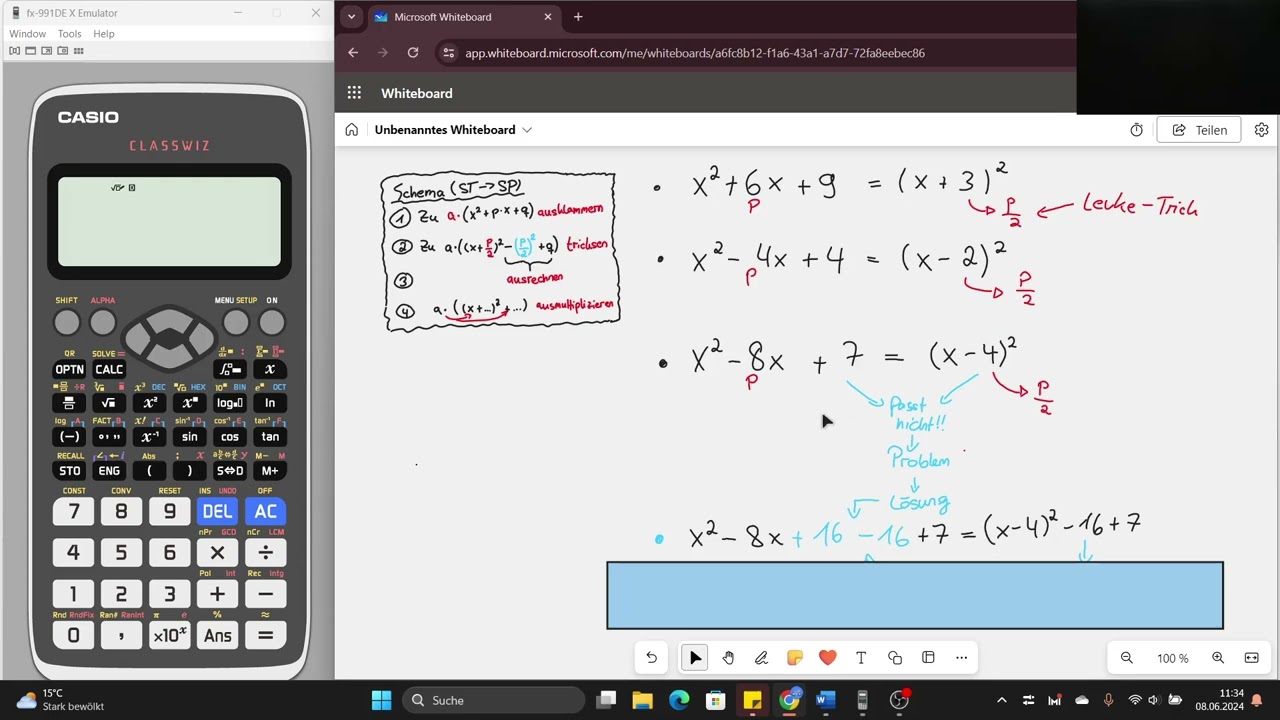 fx-991DE X Emulator
Window Tools Help
CASIO
CLASSWIZ
SHIFT ALPHA MENU SETUP ON
QR SOLVE =
OPTN CALC x
x² ln
(−) x⁻¹ sin cos tan
RECALL Abs M− M
STO ENG ( ) S⇔D M+
CONST CONV RESET INS UNDO OFF
7 8 9 DEL AC
nPr GCD nCr LCM
4 5 6 × ÷
Pol Int Rec Intg
1 2 3 + −
Rnd RndFix Ran# RanInt π e % ≈
0 , ×10ˣ Ans =
Microsoft Whiteboard
app.whiteboard.microsoft.com/me/whiteboards/a6fc8b12-f1a6-43a1-a7d7-72fa8eebec86
Whiteboard
Unbenanntes Whiteboard
Teilen
Schema (ST→SP)
① Zu a·(x²+p·x+q) ausklammern
② Zu a·((x+p/2)²−(p/2)²+q) tricksen
③ ausrechnen
④ a·((x+...)²+...) ausmultiplizieren
• x²+6x+9 = (x+3)²
p p/2 ← Levke-Trick
• x²−4x+4 = (x−2)²
p p/2
• x²−8x+7 = (x−4)²
p p/2
Passt
nicht!!
↓
Problem
↓
Lösung
• x²−8x+16−16+7=(x−4)²−16+7
100 %
15°C
Stark bewölkt
Suche
11:34
08.06.2024